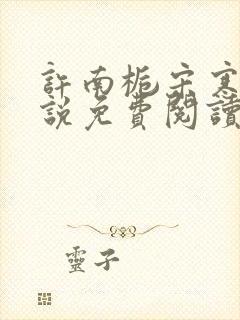 許南梔宋寒
說免費閱讀
靈子